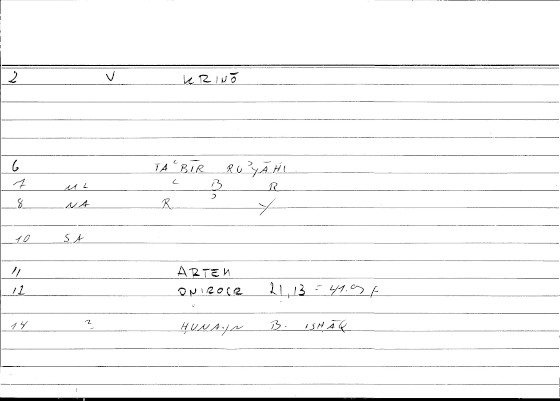 2 V KRINŌ
6 TAʿBĪR RUʾYĀHI
7 ML ʿ B R
8 NA R ʾ Y
10 SA
11 ARTEM
12 ONIROCR 21,13 =
14 2 ḤUNAYN B. ISḤĀQ